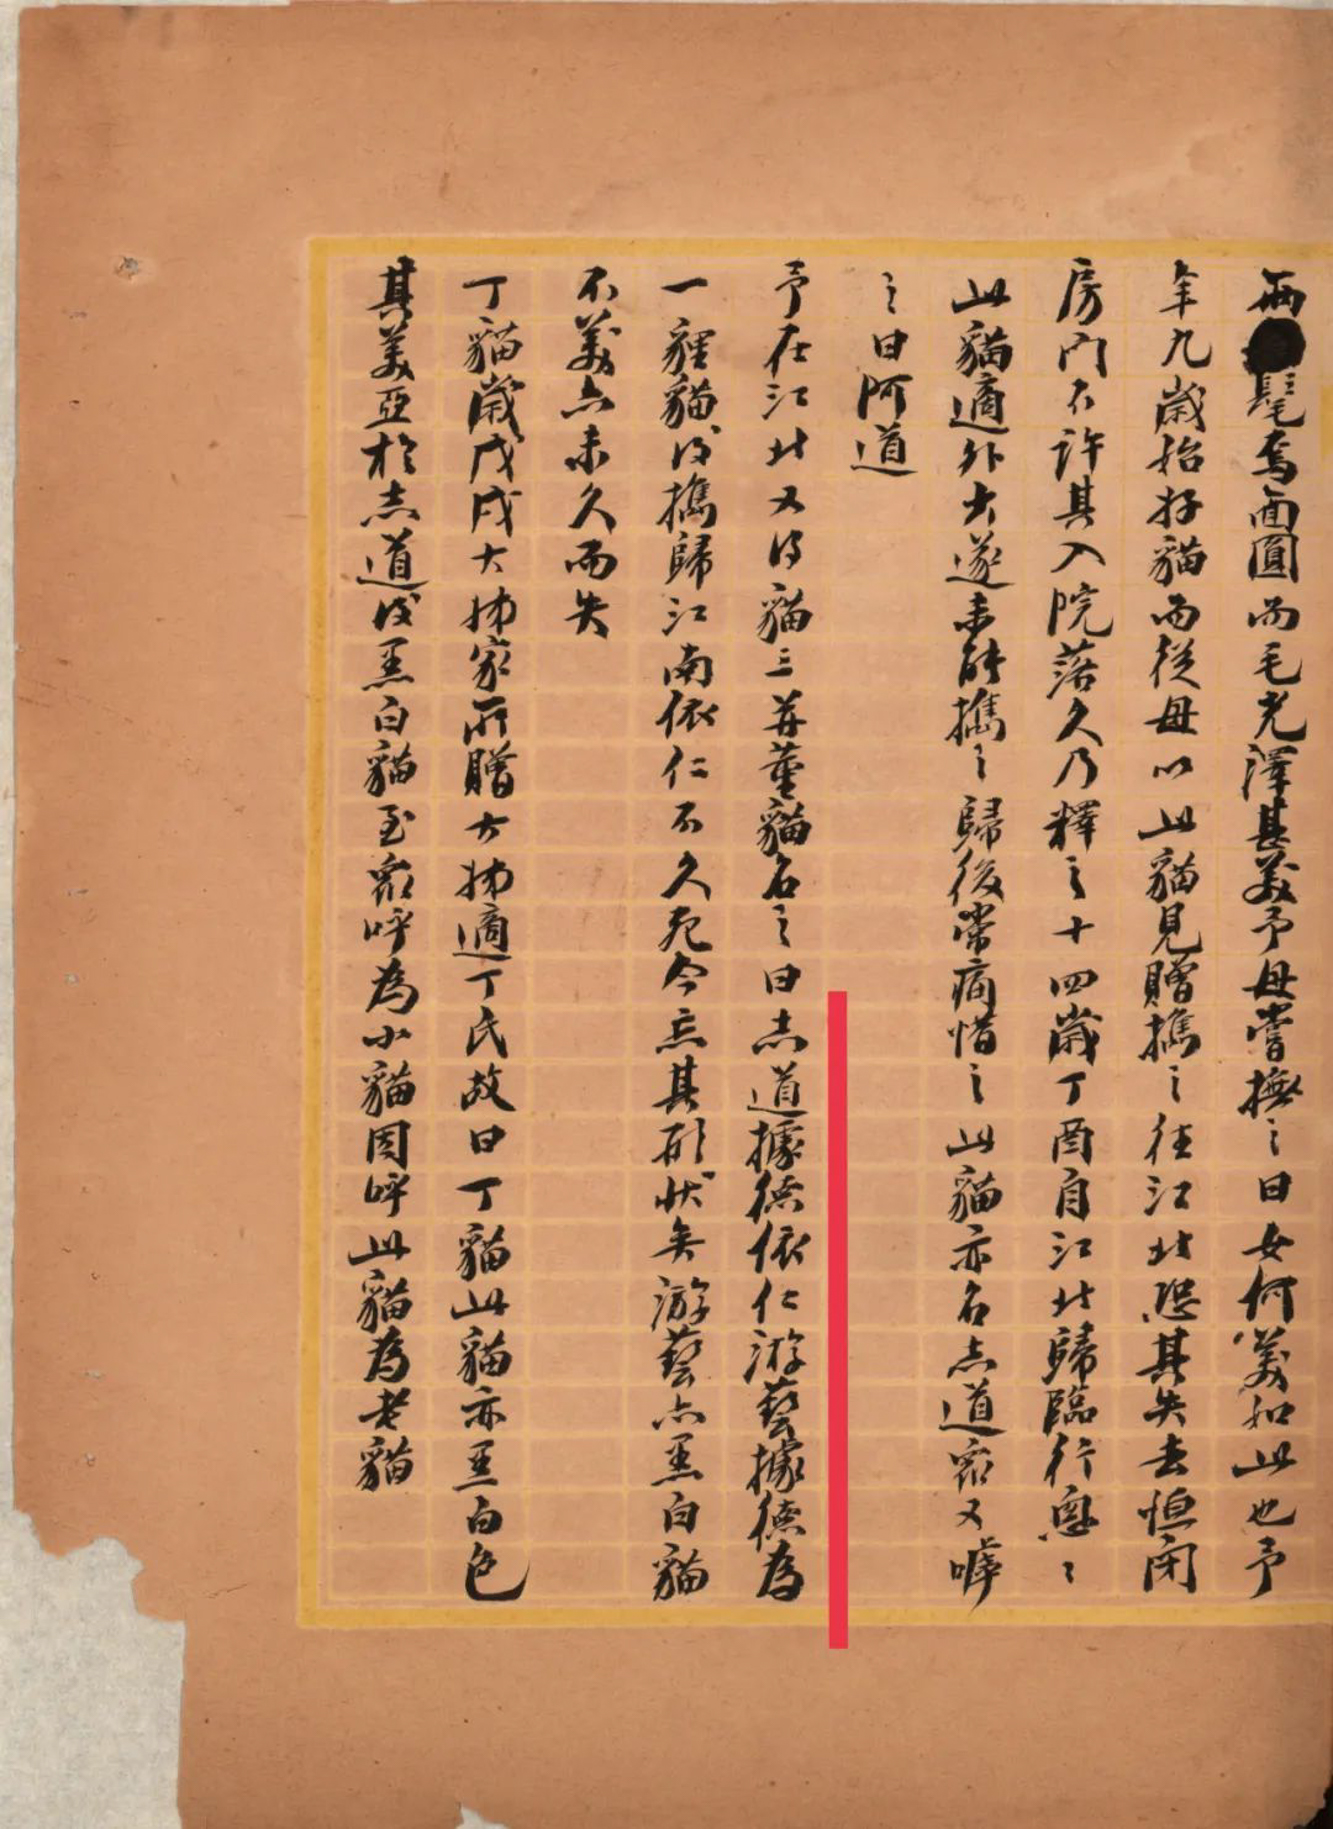 兩髦夸面圓而毛光澤甚美予母嘗撫之曰女何美如此也予
年九歲始好貓而從母以此貓見贈攜之往江北恐其失去恒閉
房門不許其入院落久乃釋之十四歲丁酉自江北歸臨行匆匆
此貓適外出遂未能攜之歸後常痛惜之此貓亦名志道家又嘑
之曰阿道
予在江北又得貓三并董貓名之曰志道據德依仁游藝據德為
一貍貓後攜歸江南依仁不久死今忘其形狀矣游藝亦黑白貓
不美亦未久而失
丁貓歲戊戌大姊家所贈大姊適丁氏故曰丁貓此貓亦黑白色
其美亞於志道後黑白貓至家呼為小貓因呼此貓為老貓